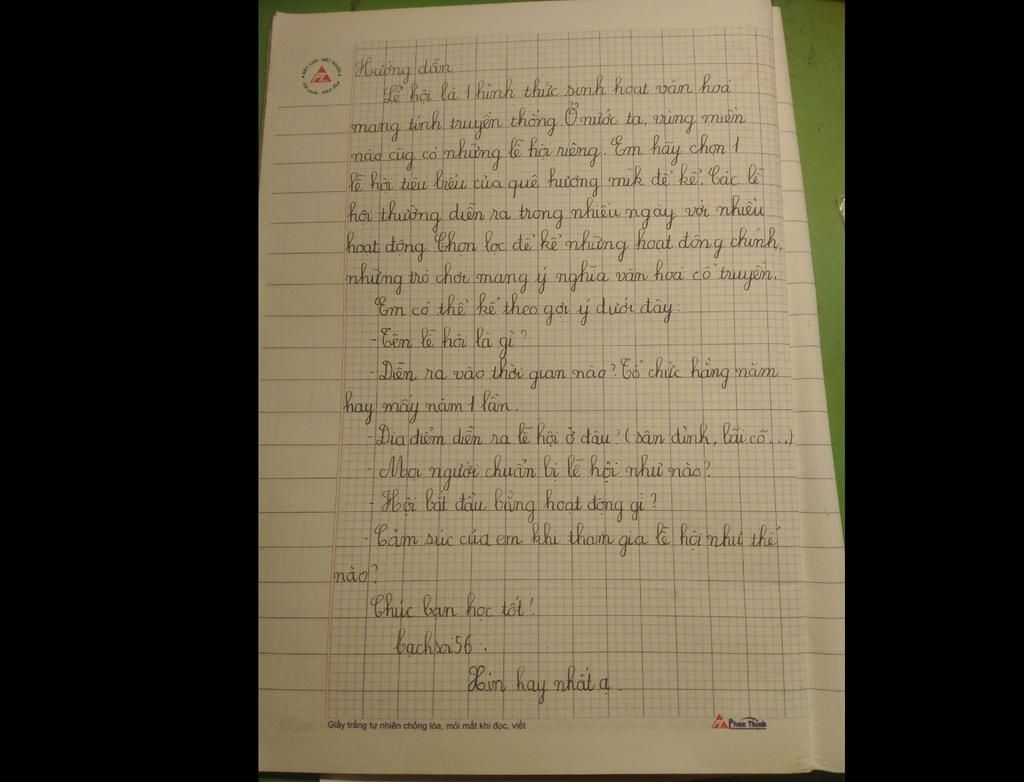 Hướng dẫn
Lễ hội là 1 hình thức sinh hoạt văn hoá
mang tính truyền thống. Ở nước ta, vùng miền
nào cũg có những lễ hội riêng. Em hãy chọn 1
lễ hội tiêu biểu của quê hương mik để kể. Các lễ
hội thường diễn ra trong nhiều ngày với nhiều
hoạt động. Chọn lọc để kể những hoạt động chính,
những trò chơi mang ý nghĩa văn hoá cổ truyền.
Em có thể kể theo gợi ý dưới đây:
- Tên lễ hội là gì?
- Diễn ra vào thời gian nào? Tổ chức hằng năm
hay mấy năm 1 lần.
- Địa điểm diễn ra lễ hội ở đâu? (sân đình, bãi cỏ...)
- Mọi người chuẩn bị lễ hội như nào?
- Hội bắt đầu bằng hoạt động gì?
- Cảm súc của em khi tham gia lễ hội như thế
nào?
Chúc bạn học tốt!
bachsoi56.
Xin hay nhất ạ.
Giấy trắng tự nhiên chống lóa, mỏi mắt khi đọc, viết
Phuc Thịnh